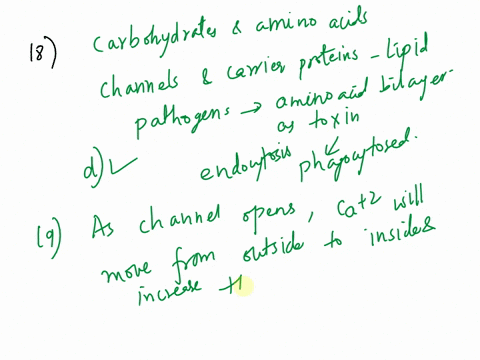 18) Carbohydrates & amino acids
channels & carrier proteins - Lipid
pathogens → amino acid bilayer.
as toxin
d) ✓ endocytosis phagocytosed.
19) As channel opens, Ca+2 will
move from outside to inside &
increase